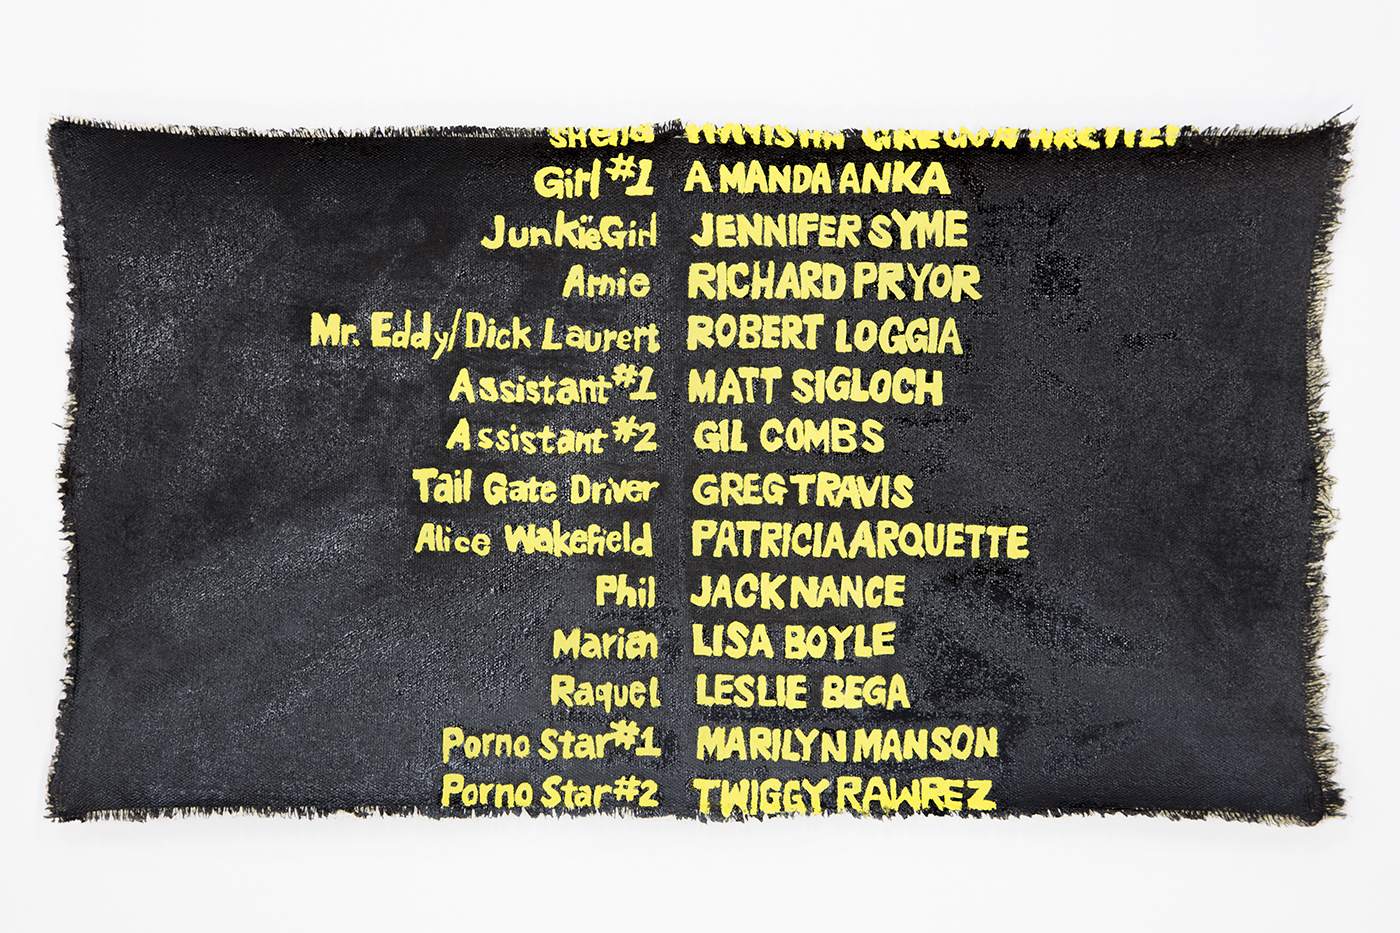 Girl #1 AMANDA ANKA
Junkie Girl JENNIFER SYME
Arnie RICHARD PRYOR
Mr. Eddy/Dick Laurert ROBERT LOGGIA
Assistant #1 MATT SIGLOCH
Assistant #2 GIL COMBS
Tail Gate Driver GREG TRAVIS
Alice Wakefield PATRICIA ARQUETTE
Phil JACK NANCE
Marian LISA BOYLE
Raquel LESLIE BEGA
Porno Star #1 MARILYN MANSON
Porno Star #2 TWIGGY RAWREZ